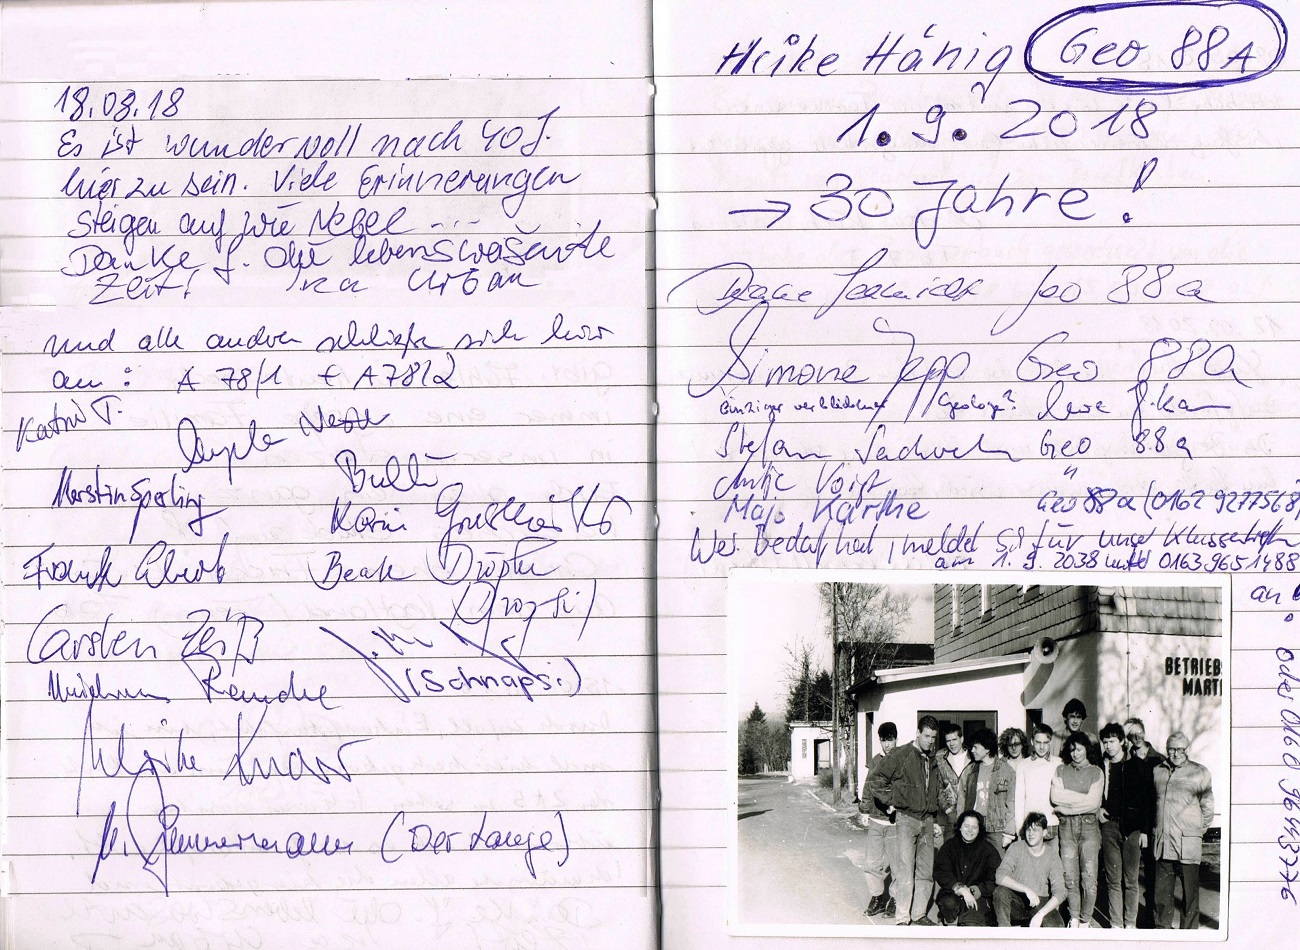 18.03.18
Es ist wundervoll nach 40 J.
hier zu sein. Viele Erinnerungen
steigen auf wie Nebel ...
Danke f. die lebenswerte
Zeit! Urban
und alle andren schließen sich hier
an: A 78/1 + A 78/2
Katrin T.
Kerstin Sperling
Karin
Frank
Beate
Carsten Zeiß
(Schnapsi)
Reincke
Ulrike
M. Zimmermann (Der Lange)
Heike Hänig Geo 88A
1.9.2018
→ 30 Jahre!
Geo 88a
Simone Jepp Geo 88A
einziger verbliebener Geologe?
Stefan Geo 88a
Antje Voigt "
Majo Karthe Geo 88a (0162 9277568)
Wer Bedarf hat, meldet sich für unser Klassentreffen
am 1.9.2038 unter 0163 9651488
an
oder 0160 96443776
BETRIEB
MARTI